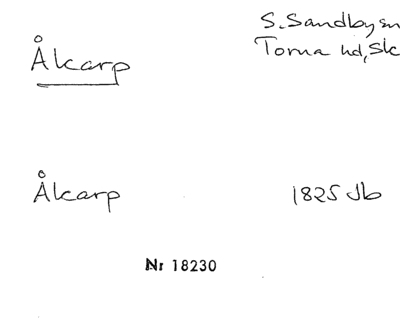 Ålcarp
S. Sandby sn
Torna hd, Sk
Ålcarp
1825 Jb
Nr 18230